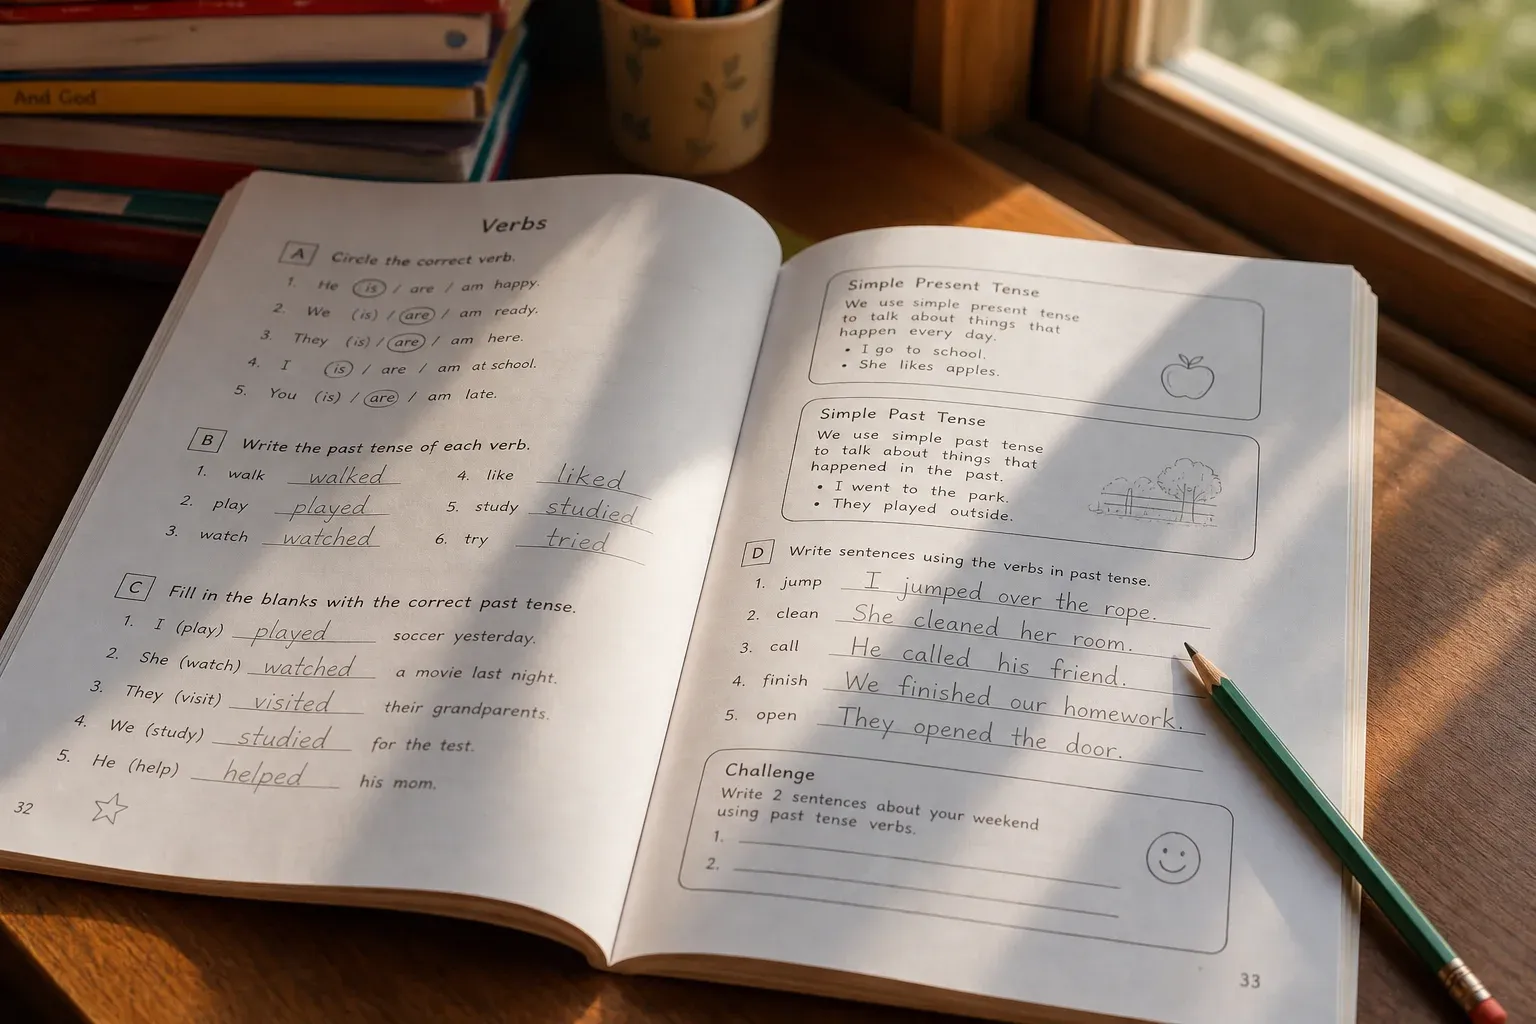 And God
Verbs
A Circle the correct verb.
1. He is / are / am happy.
2. We (is) / are / am ready.
3. They (is) / are / am here.
4. I is / are / am at school.
5. You (is) / are / am late.
B Write the past tense of each verb.
1. walk walked 4. like liked
2. play played 5. study studied
3. watch watched 6. try tried
C Fill in the blanks with the correct past tense.
1. I (play) played soccer yesterday.
2. She (watch) watched a movie last night.
3. They (visit) visited their grandparents.
4. We (study) studied for the test.
5. He (help) helped his mom.
32
Simple Present Tense
We use simple present tense
to talk about things that
happen every day.
• I go to school.
• She likes apples.
Simple Past Tense
We use simple past tense
to talk about things that
happened in the past.
• I went to the park.
• They played outside.
D Write sentences using the verbs in past tense.
1. jump I jumped over the rope.
2. clean She cleaned her room.
3. call He called his friend.
4. finish We finished our homework.
5. open They opened the door.
Challenge
Write 2 sentences about your weekend
using past tense verbs.
1.
2.
33